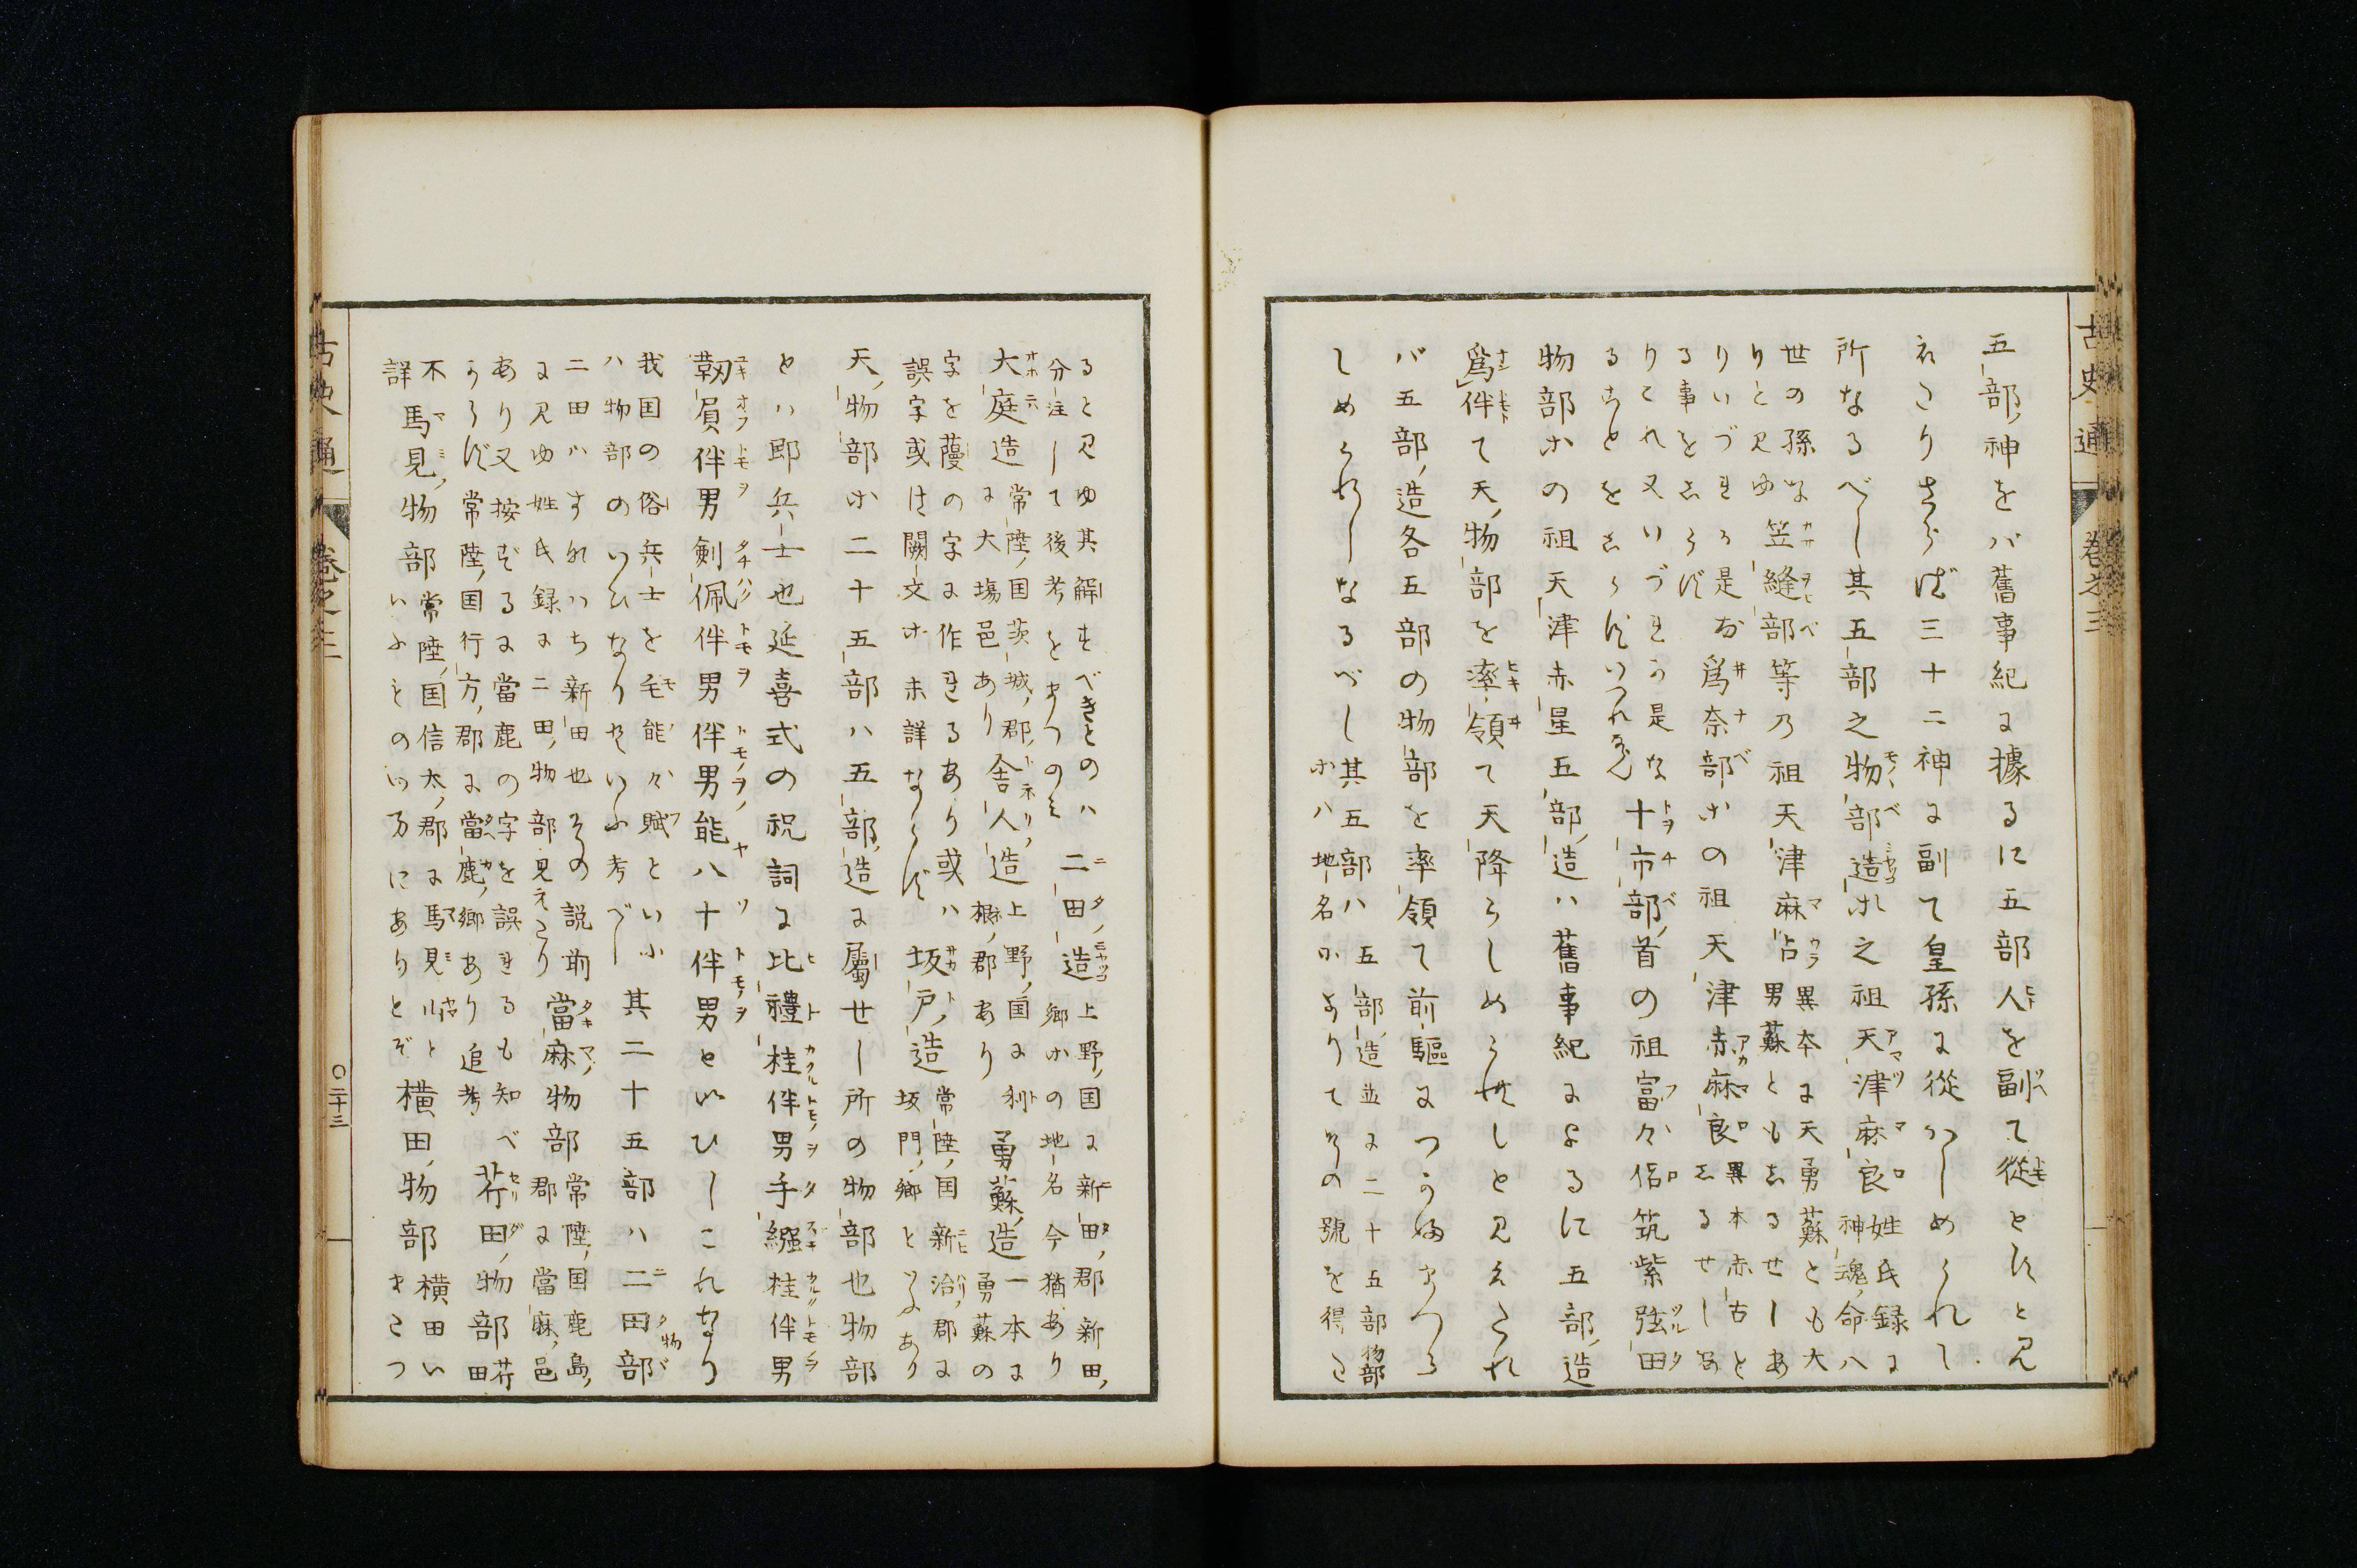 古史通 巻之三
五部神をバ舊事紀に據るに五部人を副て從とすと見
えたりさらば三十二神に副て皇孫に從はしめられし
所なるべし其五部之物部造等之祖天津麻良姓氏録に神魂命八
世の孫と見ゆ笠縫部等乃祖天津麻占異本に天勇蘇とも大男蘇ともしるせしあ
りいづれか是なる事をしらず爲奈部等の祖天津赤麻良異本赤占としるせしあ
りこれ又いづれか是なることをしらず十市部首の祖富々侶筑紫弦田
物部等の祖天津赤星五部造ハ舊事紀によるに五部造
爲伴て天物部を率領て天降らしめらせしと見えたれ
バ五部造各五部の物部を率領て前驅につかふまつら
しめられしなるべし其五部ハ五部造並に二十五部物部等ハ地名等よりてその號を得た
ると見ゆ其解すべきものハ分注して後考をまつのみ二田造上野国に新田郡新田郷等の地名今猶あり
大庭造常陸国茨城郡に大場邑あり舎人造上野国に利根郡あり勇蘇造一本に勇蘇の
字を蘰の字に作れるあり或ハ誤字或は闕文等未詳ならず坂戸造常陸国新治郡に坂門郷といふあり
天物部等二十五部ハ五部造に屬せし所の物部也物部
とハ即兵士也延喜式の祝詞に比禮桂伴男手繦桂伴男
靱負伴男劍佩伴男伴男能八十伴男といひしこれなり
我国の俗兵士を毛能々賦といふハ物部のいひなりといふ考べし其二十五部ハ二田物部
二田ハすなハち新田也その説前に見ゆ姓氏録に二田物部見えたり當麻物部常陸国鹿島郡に當麻邑
あり又按ずるに當鹿の字を誤れるも知べからず常陸国行方郡に當鹿郷あり追考芹田物部芹田
不詳馬見物部常陸国信太郡に馬見山といふものゝ別にありとぞ横田物部横田い
古史通 巻之三
〇二十三